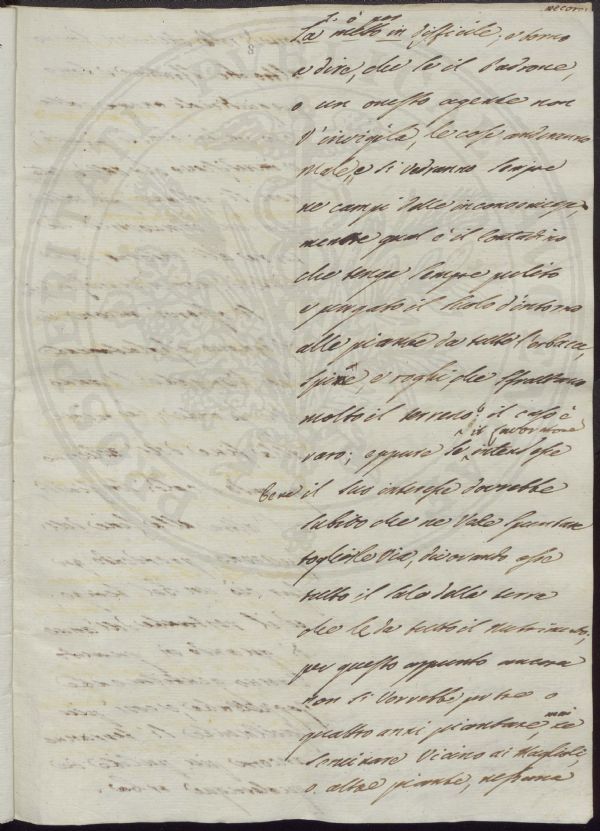 la metto in difficile; e torno
a dire, che se il Padrone,
o un onesto agente non
v'invigila, le cose anderanno
male, e si vedranno sempre
ne campi delle inconvenienze,
mentre qual è il Contadino
che tenga sempre pulito
e purgato il suolo d'intorno
alle piante da tutte l'erbacce,
spine, e roghi che sfruttano
molto il terreno? il caso è
raro; eppure se il
bene il suo interesse dovrebbe
subito che ne vede spuntare
toglierle via, divorando esse
tutto il sale della terra
che le dà tutto il nutrimento;
per questo appunto ancora
non si vorrebbe per tre o
quattro anni piantare, mai nè
seminare vicino ai Maglioli,
o altre piante, nessuna